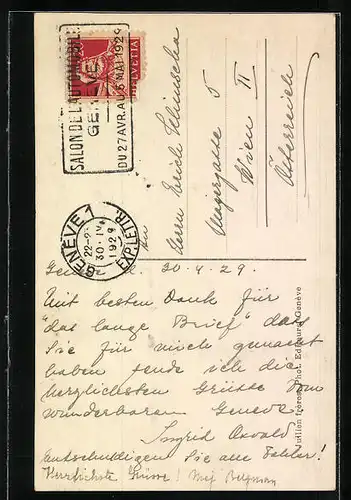 SALON DE L'AUTOMOBILE
GENÈVE
DU 27 AVR. AU 5 MAI 1929
HELVETIA
GENÈVE 1
22-2
30. IV
1929
EXP. LETTR.
An
Herrn Erich
5
Wien II
Österreich
30.4.29.
Mit besten Dank für
"das lange Brief" das
Sie für mich gemacht
haben sende ich die
herzlichsten Grüsse vom
wunderbaren Geneve
Ingrid Osvald
Entschuldigen Sie alle Fehler!
Herzlichste Grüsse!
Jullien frères, Phot. Editeurs, Genève